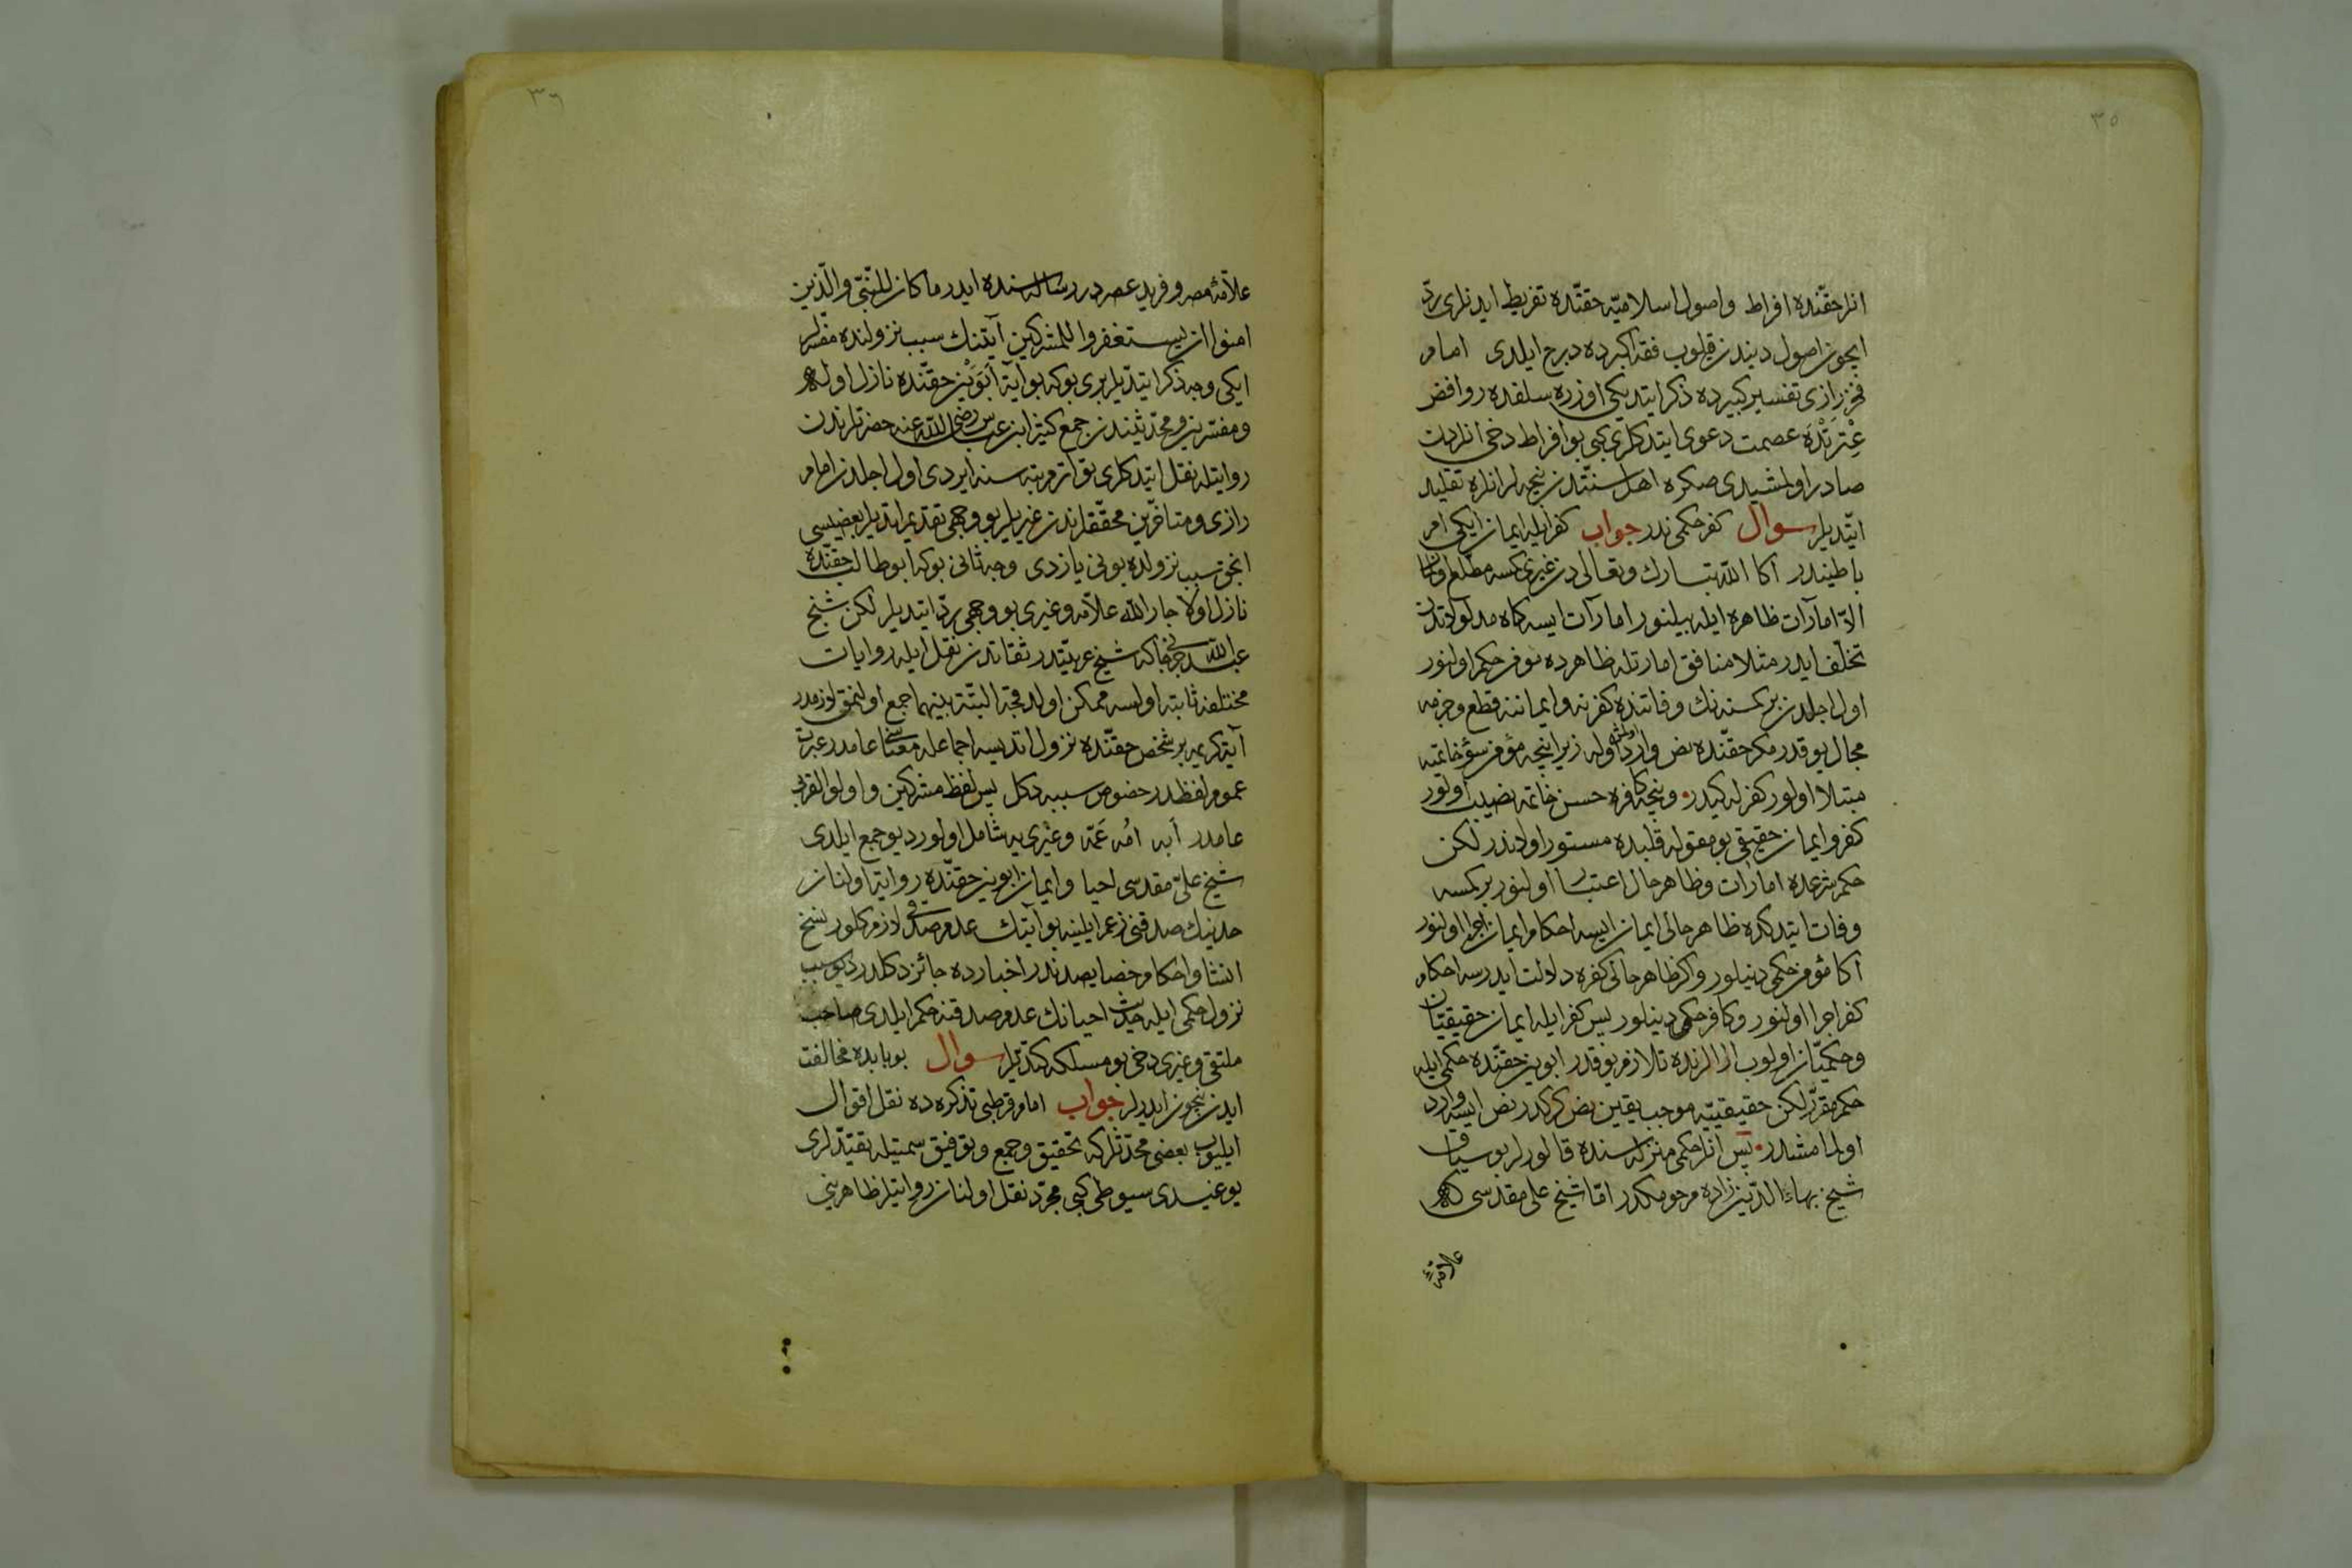 ٣٥
انلر حقّنده افراط واصول اسلاميّه حقّنده تفريط ايدنلرى ردّ
ايچون اصول ديندن قلوب فقه اكبرده درج ايلدى امام
فخر رازى تفسير كبيرده ذكر ايتديكى اوزره سلفده روافض
عِتْرَتْدَه عصمت دعوى ايتدكلرى كبى بو افراط دخى انلردن
صادر اولمشيدى صكره اهل سنّتدن نيجه لر انلره تقليد
ايتديلر سوال كفر حكمى ندر جواب كفر ايله ايمان ايكى امر
باطيندر اكا الله تبارك وتعالى دن غيرى كسه مطلع اولماز
الاّ امارات ظاهره ايله بيلنور امارات ايسه كاه مدلولاتدن
تخلّف ايدر مثلا منافق امارتله ظاهرده مؤمن حكم اولنور
اول اجلدن بر كمسنه نك وفاتنده كفرنه وايماننه قطع وجزمه
مجال يوقدر مكر حقّنده نص وارد اولمش اوله زيرا نيجه مؤمن سؤ خاتمه
مبتلا اولور كفر له كيدر ونيجه كافره حسن خاتمه نصيب اولور
كفر وايمان حقيقى بو مقوله قلبده مستور اولاندر لكن
حكم شرعده امارات وظاهر حال اعتبار اولنور بر كمسه
وفات ايتدكده ظاهر حالى ايمان ايسه احكام ايمان اجرا اولنور
اكا مؤمن حكمى دينلور واكر ظاهر حالى كفره دلالت ايدرسه احكام
كفر اجرا اولنور وكافر حكمى دينلور پس كفر ايله ايمان حقيقيّان
وحكميّان اولوب ارالرنده تلازم يوقدر ابوين حقّنده حكمى ايله
حكم مقرّر لكن حقيقيّه موجب يقين نص كركدر نص ايسه وارد
اولمامشدر پس انلر حكمى منزله سنده قالورلر بو سياق
شيخ بهاء الدّين زاده مرحومكدر امّا شيخ على مقدسى كه
علامهٔ
٣٦
علاّمهٔ مصر وفريد عصر در رساله سنده ايدر ما كان للنّبىّ والّذين
امنوا ان يستغفروا للمشركين آيتنك سبب نزولنده مفسّرلر
ايكى وجه ذكر ايتديلر برى بو كه بو آية اَبَوَيْن حقّنده نازل اوله
ومفسّرين ومحدّثيندن جمع كثير ابن عباس رضى الله عنه حضرتلرندن
روايتله نقل ايتدكلرى تواتر مرتبه سنه ايردى اول اجلدن امام
رازى ومتأخّرين محقّقلرندن غيريلر بو وجهى تقديم ايتديلر بعضيسى
انجق سبب نزولده بونى يازدى وجه ثانى بو كه ابو طالب حقّنده
نازل اولا جار الله علاّمه وغيرى بو وجهى ردّ ايتديلر لكن شيخ
عبد الله كه شيخ عربيّتدر ثقاتدن نقل ايله روايات
مختلفه ثابته اولسه ممكن اولدقجه البتّه بينهما جمع اولنمق لازمدر
آية كريمه بر شخص حقّنده نزول ايتديسه اجماعله معناسى عامدر عبرت
عموم لفظدر خصوص سببه دكل پس لفظ مشركين واولو القربى
عامدر اَبه اُمه عَمّه وغيرى يه شامل اولور ديو جمع ايلدى
شيخ علىّ مقدسى احيا وايمان ابوين حقّنده روايت اولنان
حديثك صدقنى زعم ايلينه بو آيتك عدم صدقى لازم كلور نسخ
انشا واحكام خصايصندندر اخبارده جائز دكلدر ديو سبب
نزول حكمى ايله حديث احيانك عدم صدقنه حكم ايلدى صاحب
ملتقى وغيرى دخى بو مسلكه كتديلر سوال بو بابده مخالفت
ايدن نيچون ايدرلر جواب امام قرطبى تذكره ده نقل اقوال
ايليوب بعضى محدّثلر كه تحقيق وجمع وتوفيق سمتيله تقيّدلرى
يوغيدى سيوطى كبى مجرّد نقل اولنان روايتلر ظاهرينى